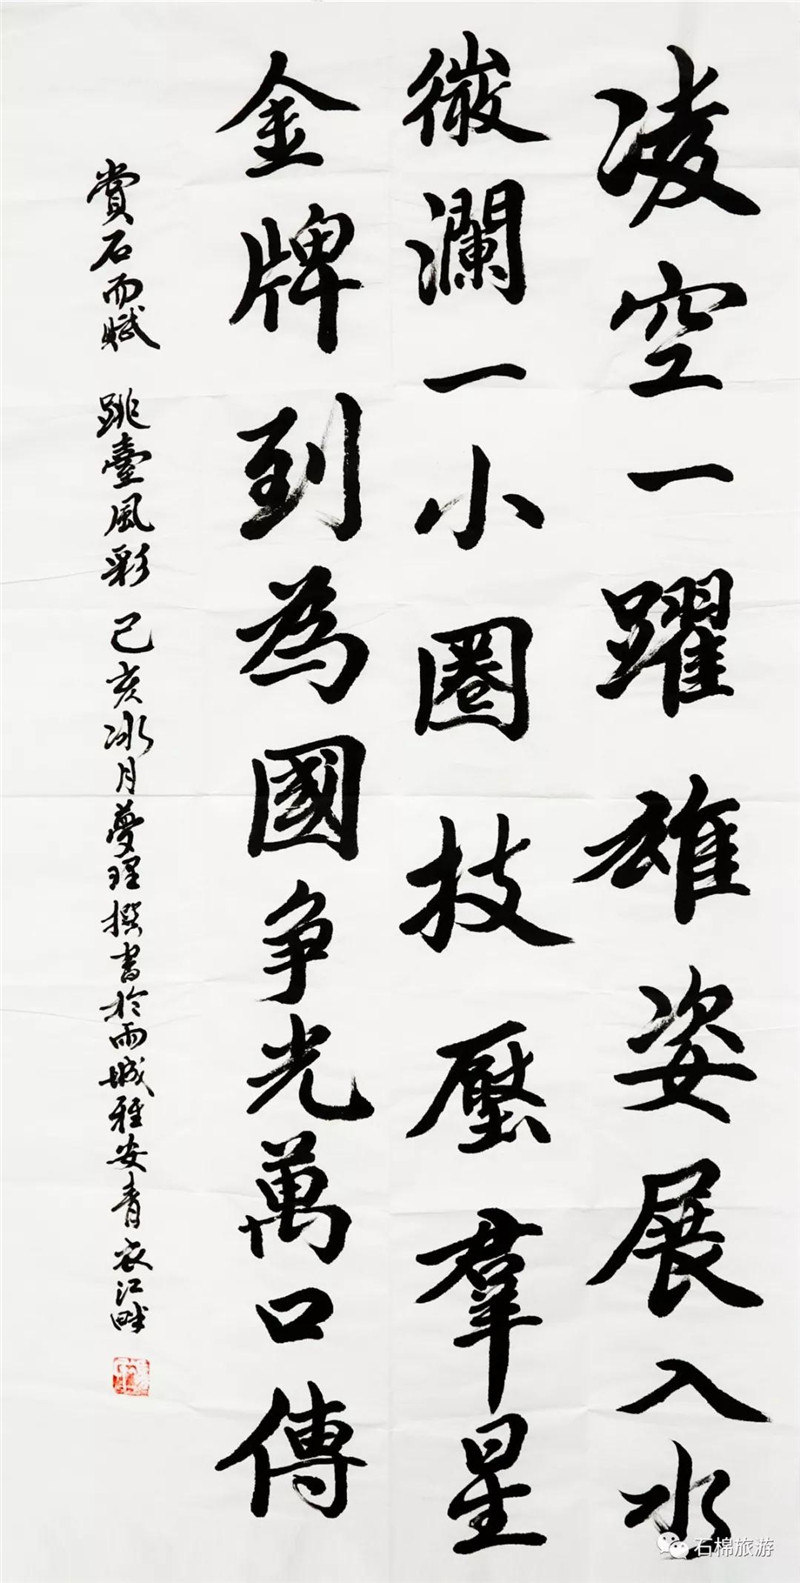 凌空一躍雄姿展入水
微瀾一小圈技壓羣星
金牌到為國爭光萬口傳
賞石而賦 跳臺風彩 己亥冰月夢理撰書於雨城雅安青衣江畔
石棉旅游